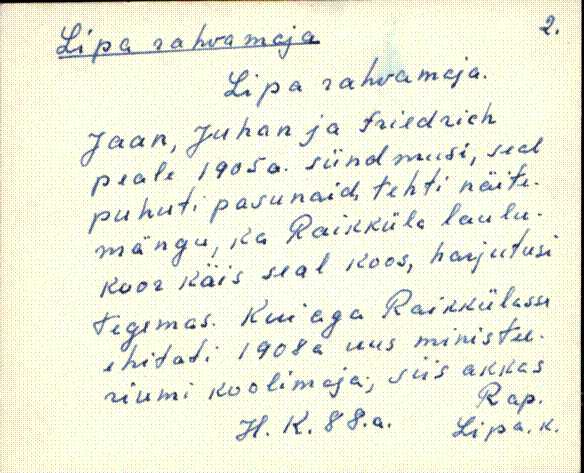 Lipa rahvamaja
2.
Lipa rahvamaja.
Jaan, Juhan ja Friedrich
peale 1905a. sündmusi, seal
puhuti pasunaid, tehti näite-
mängu, ka Raikküla laulu-
koor käis seal koos, harjutusi
tegemas. Kui aga Raikkülasse
ehitati 1908a uus ministee-
riumi koolimaja, siis akkas
Rap.
H. K. 88.a. Lipa. k.